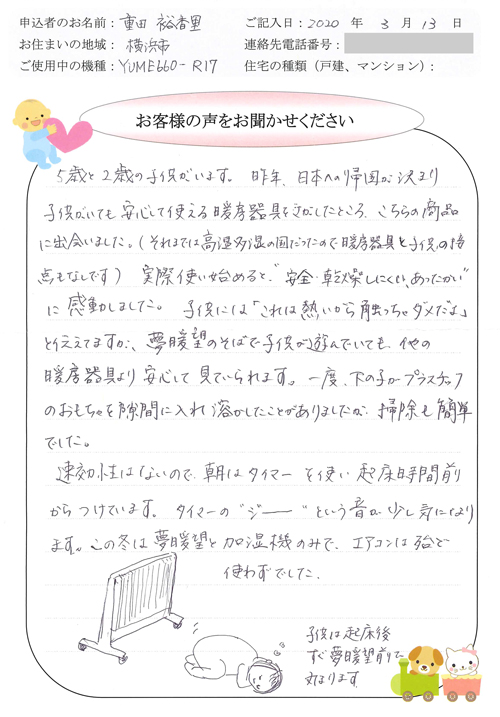 申込者のお名前： 重田 裕香里
ご記入日：2020 年 3 月 13 日
お住まいの地域： 横浜市
連絡先電話番号：
ご使用中の機種：YUME660-R17
住宅の種類（戸建、マンション）：
お客様の声をお聞かせください
5歳と2歳の子供がいます。昨年、日本への帰国が決まり
子供がいても安心して使える暖房器具をさがしたところ、こちらの商品
に出会いました。（それまでは高温多湿の国だったので暖房器具と子供の接
点もなしです） 実際使い始めると、"安全・乾燥しにくい、あったかい"
に感動しました。 子供には「これは熱いから触っちゃダメだよ」
と伝えてますが、夢暖望のそばで子供が遊んでいても、他の
暖房器具より安心して見ていられます。一度、下の子がプラスチック
のおもちゃを隙間に入れ溶かしたことがありましたが、掃除も簡単
でした。
速効性はないので、朝はタイマーを使い起床時間前
からつけています。タイマーの"ジーー"という音が少し気になり
ます。この冬は夢暖望と加湿機のみで、エアコンは殆ど
使わずでした。
子供は起床後
すぐ夢暖望前で
丸まります